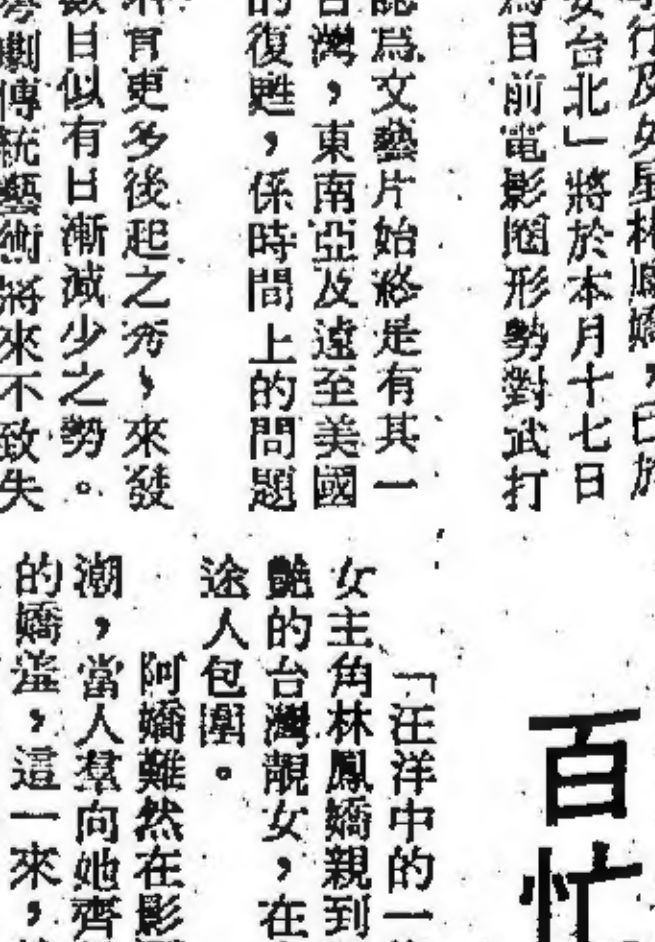 行及女星林鳳嬌，已於
安台北」將於本月十七日
為目前電影圈形勢對武打
認爲文藝片始終是有其一
台灣，東南亞及遠至美國
的復甦，係時間上的問題
有更多後起之秀，來發
數目似有日漸減少之勢。
劇傳統藝術將來不致失
百忙
「汪洋中的一
女主角林鳳嬌親到
艷的台灣靚女，在
途人包圍。
阿嬌雖然在影
潮，當人羣向她齊
的嬌羞，這一來，